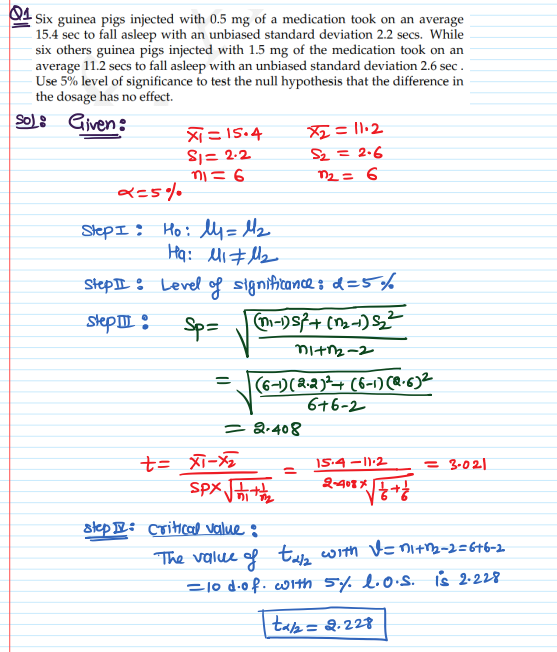 Q1 Six guinea pigs injected with 0.5 mg of a medication took on an average
15.4 sec to fall asleep with an unbiased standard deviation 2.2 secs. While
six others guinea pigs injected with 1.5 mg of the medication took on an
average 11.2 secs to fall asleep with an unbiased standard deviation 2.6 sec .
Use 5% level of significance to test the null hypothesis that the difference in
the dosage has no effect.
Sol: Given:
x̄1 = 15.4 x̄2 = 11.2
S1 = 2.2 S2 = 2.6
n1 = 6 n2 = 6
α = 5 %
Step I : Ho: μ1 = μ2
Ha: μ1 ≠ μ2
Step II : Level of significance: α = 5 %
Step III : Sp = √((n1-1)S1² + (n2-1)S2² / n1+n2-2)
= √((6-1)(2.2)² + (6-1)(2.6)² / 6+6-2)
= 2.408
t = x̄1 - x̄2 / SP× √(1/n1 + 1/n2) = 15.4 - 11.2 / 2.408 × √(1/6 + 1/6) = 3.021
Step IV : Critical value :
The value of tα/2 with ν = n1+n2-2 = 6+6-2
= 10 d.o.f. with 5% l.o.s. is 2.228
tα/2 = 2.228